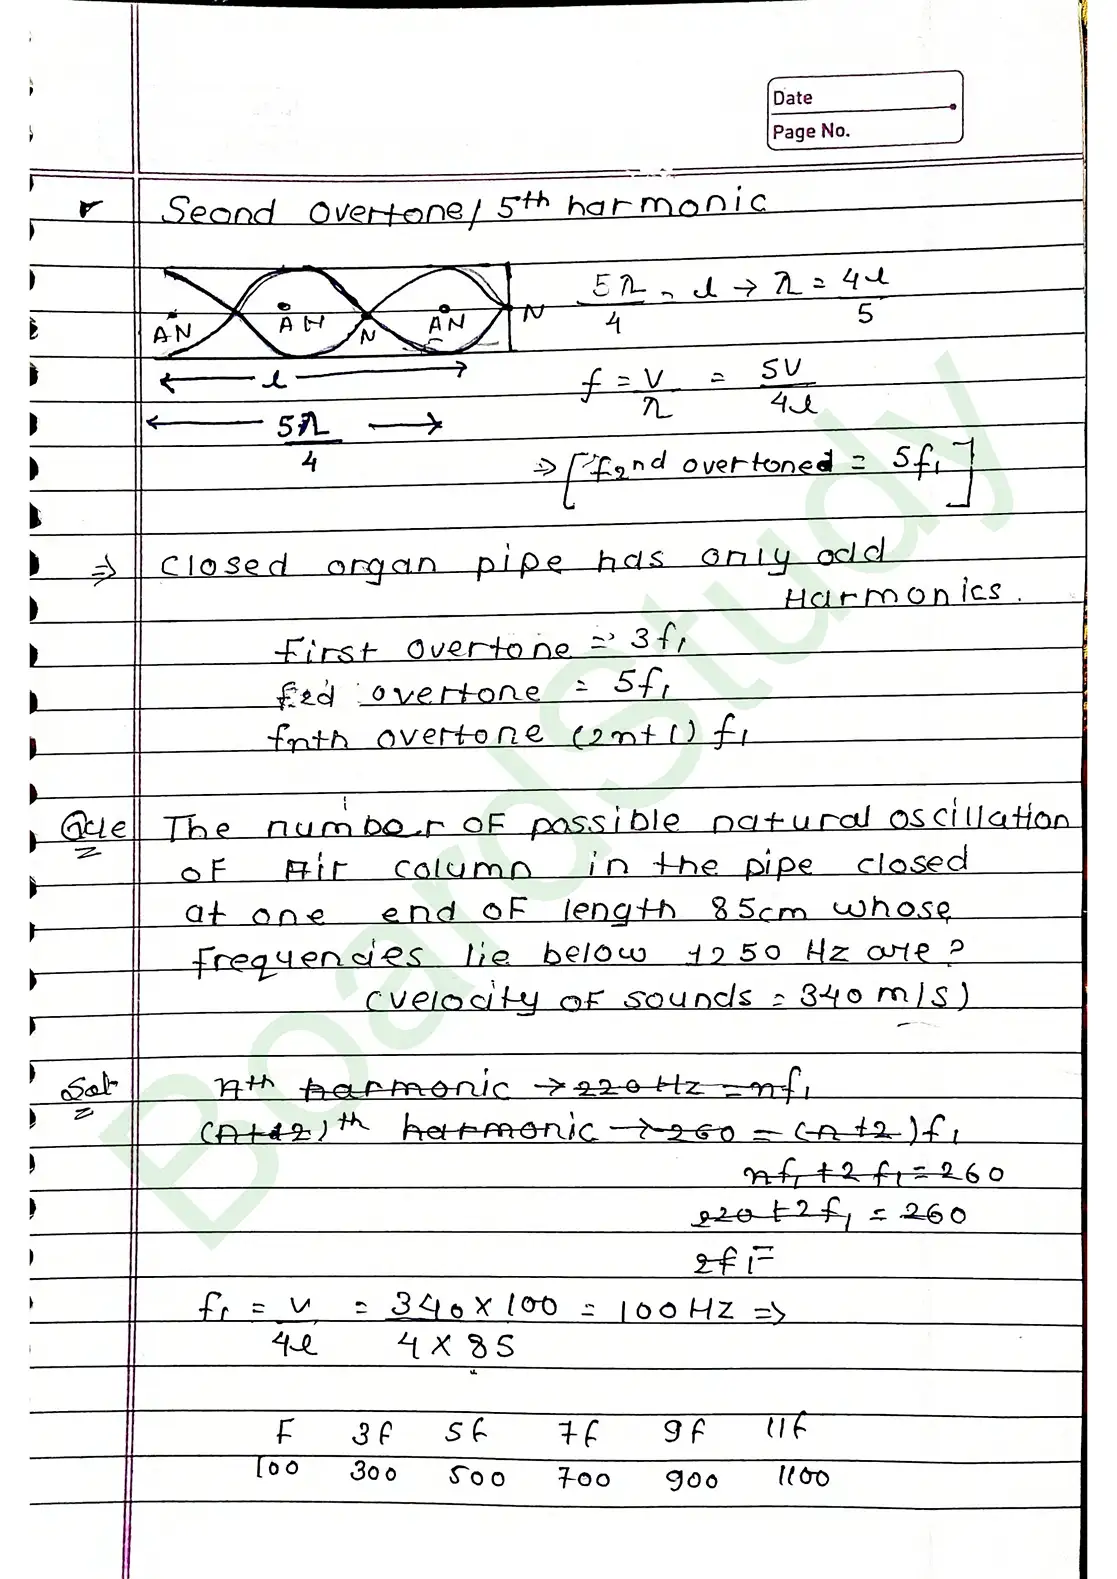 Date
Page No.
Seond overtone / 5th harmonic
5λ/4 = l → λ = 4l/5
AN AN N AN N
l
f = V/λ = 5V/4l
5λ/4
⇒ [f2nd overtoned = 5f₁]
⇒ closed organ pipe has only odd
Harmonics.
First overtone = 3f₁
f2d overtone = 5f₁
fnth overtone (2n+1) f₁
Que The number of possible natural oscillation
of Air column in the pipe closed
at one end of length 85cm whose
frequencies lie below 1250 Hz are?
(velocity of sounds = 340 m/s)
Sol nth harmonic → 220 Hz = nf₁
(n+2)th harmonic → 260 = (n+2)f₁
nf₁ + 2f₁ = 260
220 + 2f₁ = 260
2f₁ =
f₁ = v/4l = 340 × 100/4 × 85 = 100 HZ ⇒
F 3f 5f 7f 9f 11f
100 300 500 700 900 1100
BoardStudy